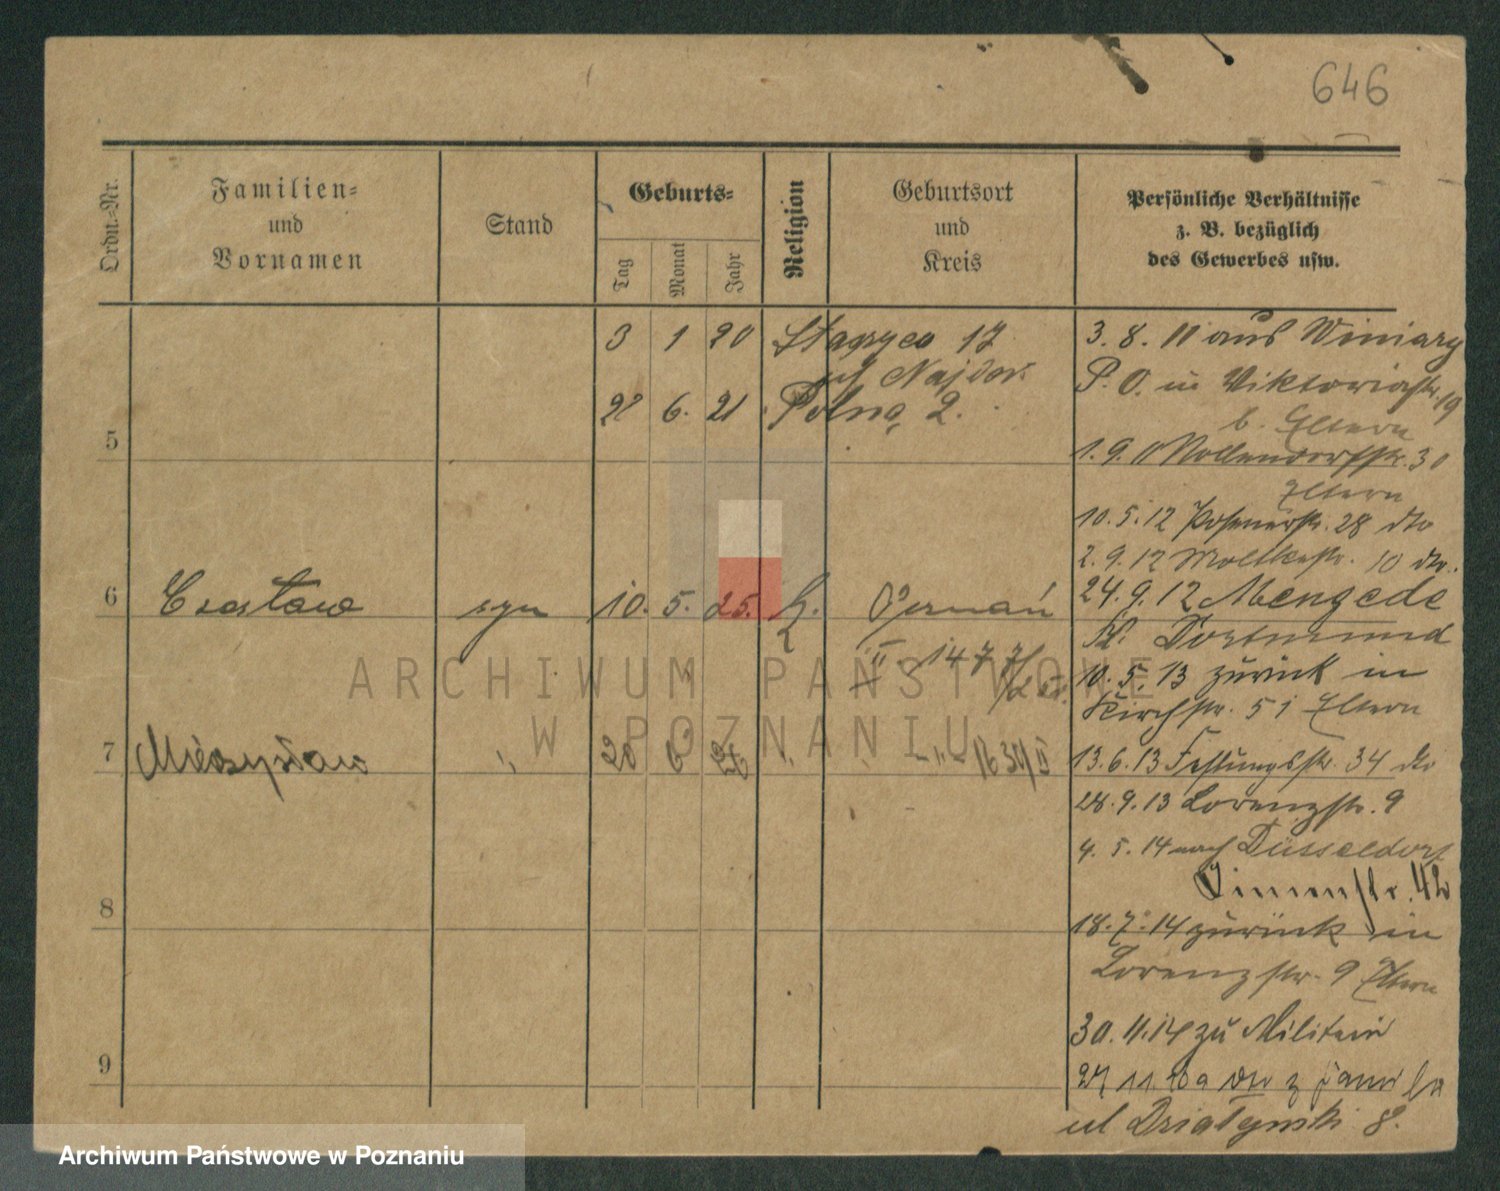 646
Ordn.-Nr.
Familien-
und
Vornamen
Stand
Geburts-
Tag
Monat
Jahr
Religion
Geburtsort
und
Kreis
Persönliche Verhältnisse
z. B. bezüglich
des Gewerbes usw.
3 1 20 17
22 6. 21 Polna 2.
5
6 Czesław syn 10. 5. 25. Poznań
II 1477/
7 Mieczysław " 20 6 26 " "
8
9
3. 8. 11 aus Winiary
P. O. in Viktoriastr. 19
b. Eltern
1. 9. 11 Nollendorfstr. 30
Eltern
10. 5. 12 Posenerstr. 28 dto
2. 9. 12 Moltkestr. 10 dto.
24. 9. 12 Mengede
Kr. Dortmund
10. 5. 13 zurück in
Kirchstr. 51 Eltern
13. 6. 13 Festungsstr. 34 dto
28. 9. 13 Lorenzstr. 9
4. 5. 14 nach Düsseldorf
42
18. 7. 14 zurück in
Lorenzstr. 9 Eltern
30. 11. 14 zu Militair
ul Działyński 8.
ARCHIWUM PAŃSTWOWE
W POZNANIU
Archiwum Państwowe w Poznaniu